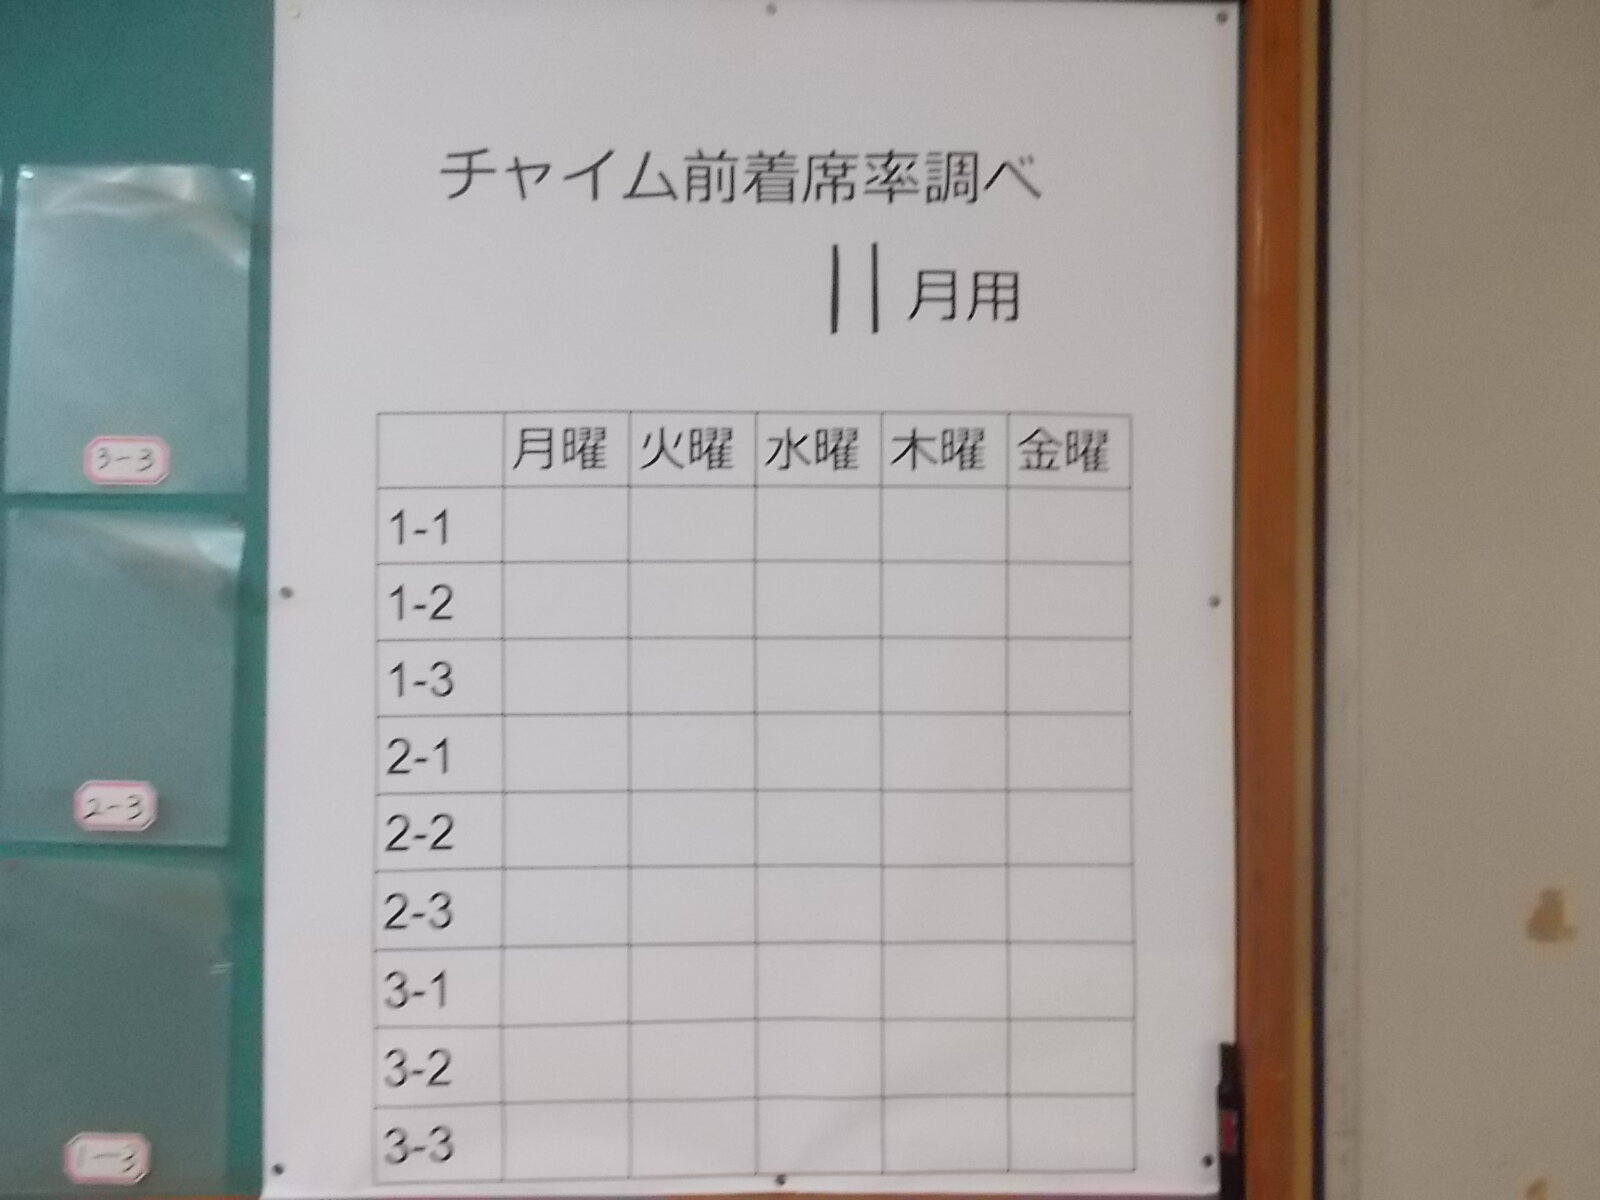 チャイム前着席率調べ
11月用
月曜 火曜 水曜 木曜 金曜
1-1
1-2
1-3
2-1
2-2
2-3
3-1
3-2
3-3
3-3
2-3
1-3